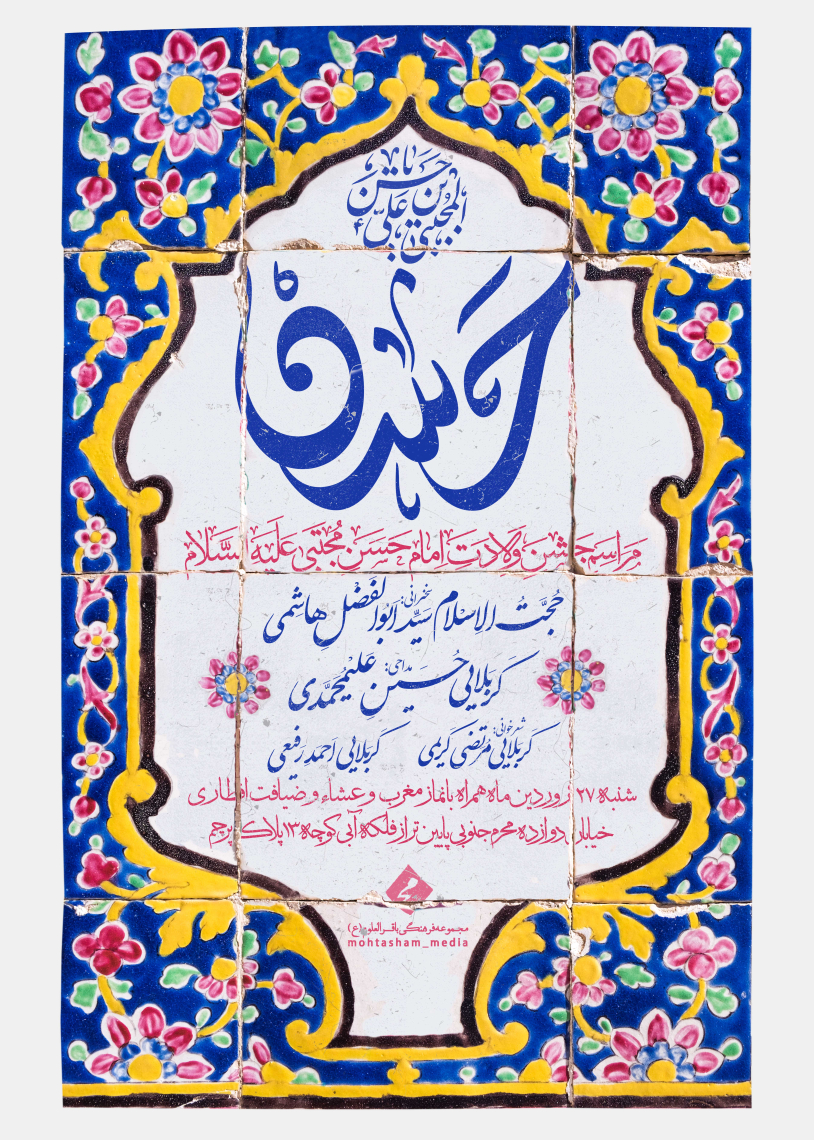 یا حسن بن علی المجتبی
حسن
مراسم جشن ولادت امام حسن مجتبی علیه السلام
سخنرانی: حجت الاسلام سید ابوالفضل هاشمی
مداحی: کربلایی حسین علیمحمدی
شعرخوانی: کربلایی مرتضی کریمی کربلایی احمد رفیعی
شنبه ۲۷ فروردین ماه همراه با نماز مغرب و عشاء و ضیافت افطاری
خیابان دوازده محرم جنوبی پایین تر از فلکه آبی کوچه ۱۳ پلاک پرچم
مجموعه فرهنگی باقرالعلوم (ع)
mohtasham_media